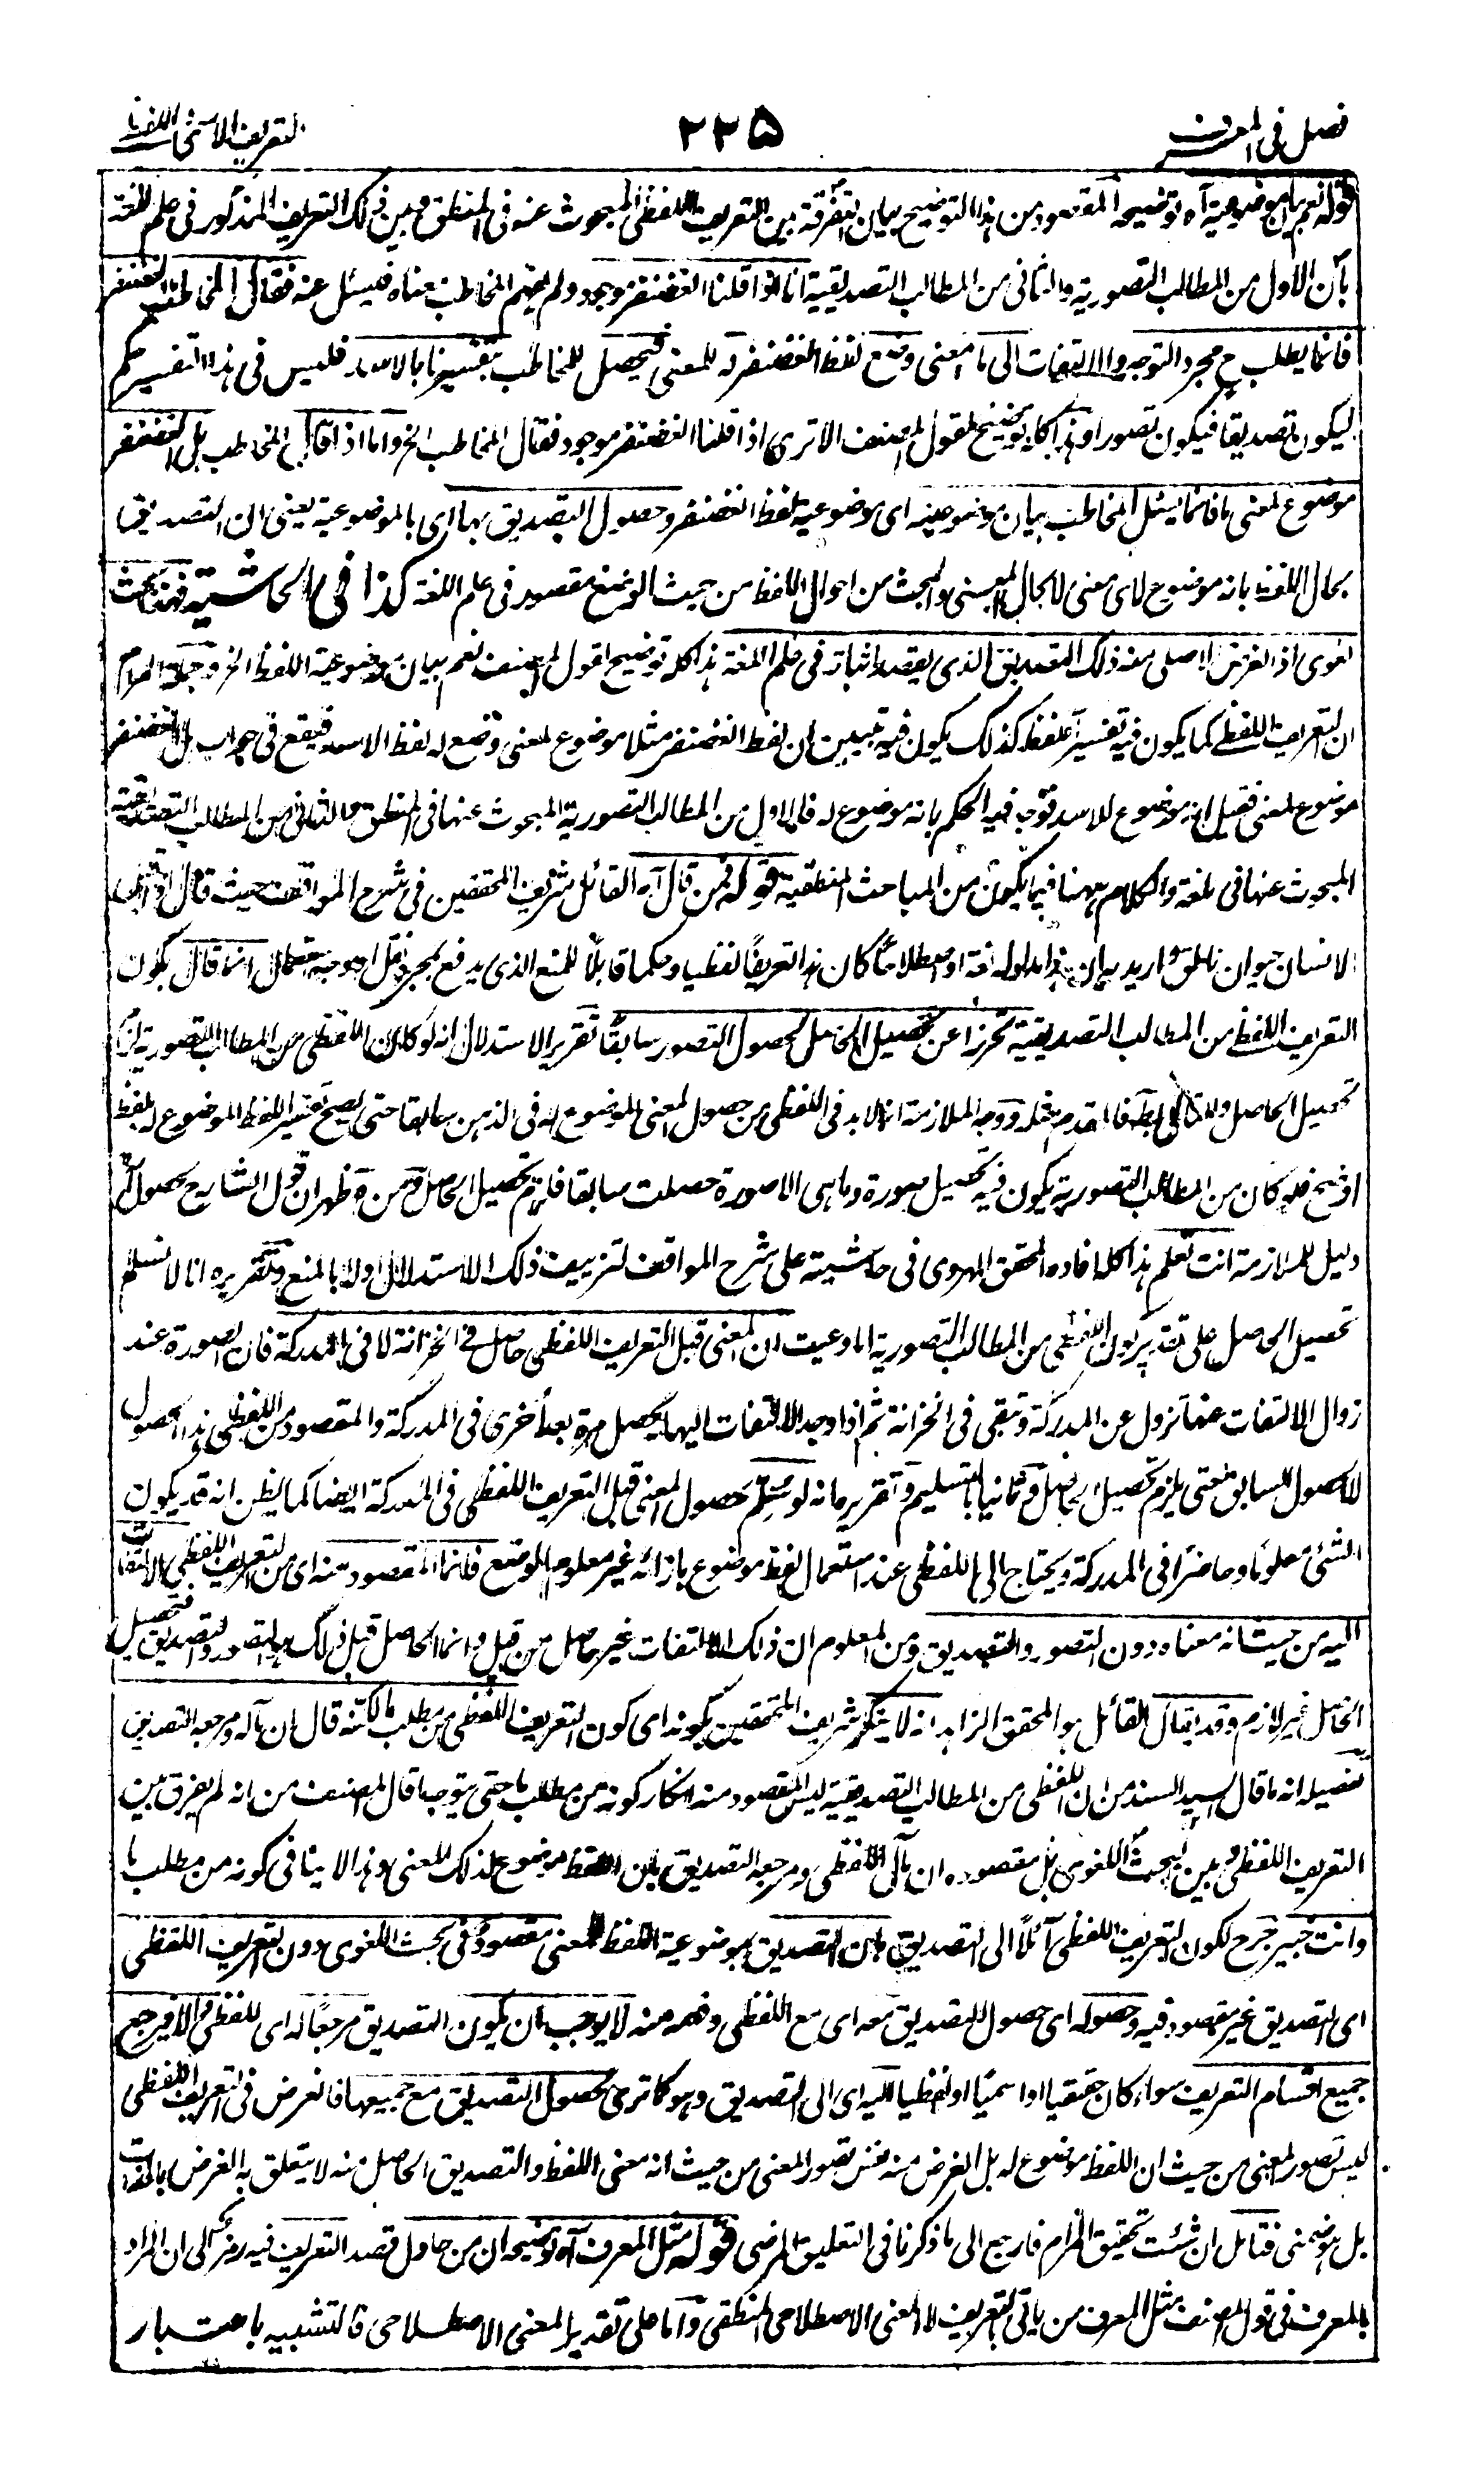 فصل فی المعرف
٢٢٥
التعریف اللفظی
قوله نعم بیان موضوعیة آه توضیحه المقصود من هذا التوضیح بیان التفرقة بین التعریف اللفظی المبحوث عنه فی المنطق وبین ذلک التعریف المذکور فی علم اللغة
بأن الاول من المطالب التصوریة والثانی من المطالب التصدیقیة انا اذا قلنا الغضنفر موجود ولم یفهم المخاطب معناه فیسئل عنه فقال المخاطب الغضنفر
فانما یطلب ح مجرد التوجه والالتفات الی ما معنی وضع لفظ الغضنفر له للمعنی فیحصل للمخاطب بتفسیرنا بالاسد فلیس فی هذا التفسیر حکم
لیکون تصدیقا فیکون تصورا وهذا کله توضیح لقول المصنف الا تری اذا قلنا الغضنفر موجود فقال المخاطب الخ واما اذا قال المخاطب بل الغضنفر
موضوع لمعنی ما فانما یسئل المخاطب بیان موضوعیته ای موضوعیة لفظ الغضنفر وحصول التصدیق بها ای بالموضوعیة یعنی ان التصدیق
بحال اللفظ بانه موضوع لای معنی لا بحال المعنی والبحث من احوال اللفظ من حیث الوضع مقصود فی علم اللغة کذا فی الحاشیة فهذا بحث
لغوی اذ الغرض الاصلی منه ذلک التصدیق الذی یقصد اثباته فی علم اللغة هذا کله توضیح لقول المصنف نعم بیان موضوعیة اللفظ الخ وجملة المرام
ان التعریف اللفظی کما یکون فیه تفسیر اللفظ کذلک یکون فیه تبیین ان لفظ الغضنفر مثلا موضوع لمعنی وضع له لفظ الاسد فیقع فی جواب بل الغضنفر
موضوع لمعنی فقیل انه موضوع للاسد فتوجه فیه الحکم بانه موضوع له فالاول من المطالب التصوریة المبحوث عنها فی المنطق والثانی من المطالب التصدیقیة
المبحوث عنها فی اللغة والکلام ههنا فیما یکون من المباحث المنطقیة قوله فمن قال آه القائل شریف المحققین فی شرح المواقف حیث قال اذا قیل
الانسان حیوان ناطق وارید به ان هذا مدلوله لغة او اصطلاحا کان هذا تعریفًا لفظیا وحکما قابلًا للمنع الذی یدفع بمجرد نقل او وجه استعمال انما قال بکون
التعریف اللفظی من المطالب التصدیقیة تحرزا عن تحصیل الحاصل لحصول التصور سابقًا تقریر الاستدلال انه لو کان اللفظی من المطالب التصوریة لزم
تحصیل الحاصل والتالی بط فالمقدم مثله ووجه الملازمة انه لابد فی اللفظی من حصول المعنی الموضوع له فی الذهن سابقا حتی یصح تفسیر اللفظ الموضوع له بلفظ
اوضح فلو کان من المطالب التصوریة یکون فیه تحصیل صورة وما هی الا صورة حصلت سابقا فلزم تحصیل الحاصل ومن ثم ظهر ان قول الشارح لحصول الخ
دلیل للملازمة انت تعلم هذا کله افاده المحقق الهروی فی حاشیته علی شرح المواقف لتزییف ذلک الاستدلال اولا بالمنع وتقریره انا لا نسلم
تحصیل الحاصل علی تقدیر کون اللفظی من المطالب التصوریة اما وعیت ان المعنی قبل التعریف اللفظی حاصل فی الخزانة لا فی المدرکة فان الصورة عند
زوال الالتفات عنها تزول عن المدرکة وتبقی فی الخزانة ثم اذا وجد الالتفات الیها یحصل مرة بعد أخری فی المدرکة والمقصود من اللفظی هذا الحصول
لا الحصول السابق حتی یلزم تحصیل الحاصل وثانیا بالتسلیم وتقریره انه لو سلم حصول المعنی قبل التعریف اللفظی فی المدرکة ایضا کما یظن انه قد یکون
الشیٔ معلومًا وحاضرًا فی المدرکة ویحتاج الی اللفظی عند استعمال لفظ موضوع بازائه غیر معلوم الوضع فانما المقصود منه ای من التعریف اللفظی الالتفات
الیه من حیث انه معناه دون التصور والتصدیق ومن المعلوم ان ذلک الالتفات غیر حاصل من قبل وانما الحاصل قبل ذلک هو التصور والتصدیق فتحصیل
الحاصل غیر لازم وقد یقال القائل هو المحقق الزاهد انه لا ینکر شریف المحققین بکونه ای کون التعریف اللفظی من مطلب ما لکنه قال ان مآله ومرجعه التصدیق
تفصیله انه ما قال السید السند من ان اللفظی من المطالب التصدیقیة لیس المقصود منه انکار کونه من مطلب ما حتی یتوجه ما قال المصنف من انه لم یفرق بین
التعریف اللفظی وبین البحث اللغوی بل مقصوده ان مآل اللفظی ومرجعه التصدیق بان اللفظ موضوع لذلک المعنی وهذا لا ینافی کونه من مطلب ما
وانت خبیر جرح لکون التعریف اللفظی آئلًا الی التصدیق بان التصدیق بموضوعیة اللفظ للمعنی مقصود فی البحث اللغوی دون التعریف اللفظی
ای التصدیق غیر مقصود فیه وحصوله ای حصول التصدیق معه ای مع اللفظی وفهمه منه لا یوجب ان یکون التصدیق مرجعًا له ای للفظی والا فیرجع
جمیع اقسام التعریف سواء کان حقیقیا او اسمیًا او لفظیا الیه ای الی التصدیق وهو کما تری لحصول التصدیق مع جمیعها فالغرض فی التعریف اللفظی
لیس تصور المعنی من حیث ان اللفظ موضوع له بل الغرض منه نفس تصور المعنی من حیث انه معنی اللفظ والتصدیق الحاصل منه لا یتعلق به الغرض بالذات
بل هو ضمنی فتأمل ان شئت تحقیق المرام فارجع الی ما ذکرنا فی التعلیق المرضی قوله مثل المعرف آه توضیحه ان من حاول قصد التعریف فیه رمز الی ان المراد
بالمعرف فی قول المصنف مثل المعرف من یأتی بالتعریف لا المعنی الاصطلاحی المنطقی واما علی تقدیر المعنی الاصطلاحی فالتشبیه باعتبار